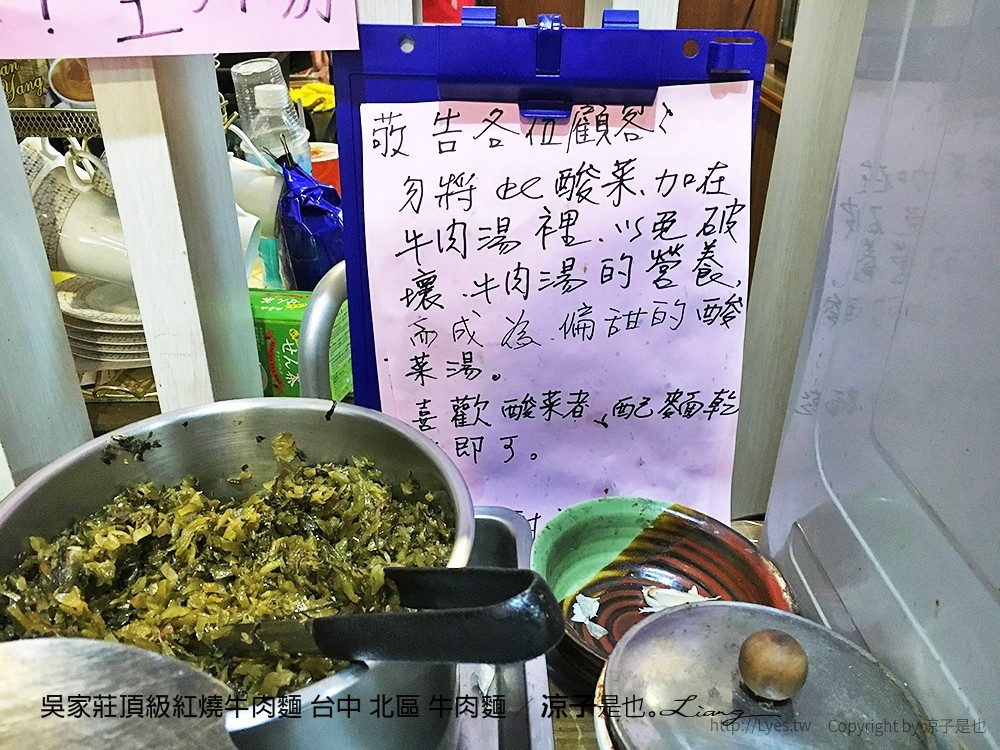 an
Yang
敬告各位顧客:
勿將此酸菜、加在
牛肉湯裡、以免破
壞.牛肉湯的營養,
而成為.偏甜的酸
菜湯。
喜歡酸菜者、配麵乾
即可。
吳家莊頂級紅燒牛肉麵 台中 北區 牛肉麵 / 涼子是也。Liang
http://Lyes.tw Copyright by 涼子是也